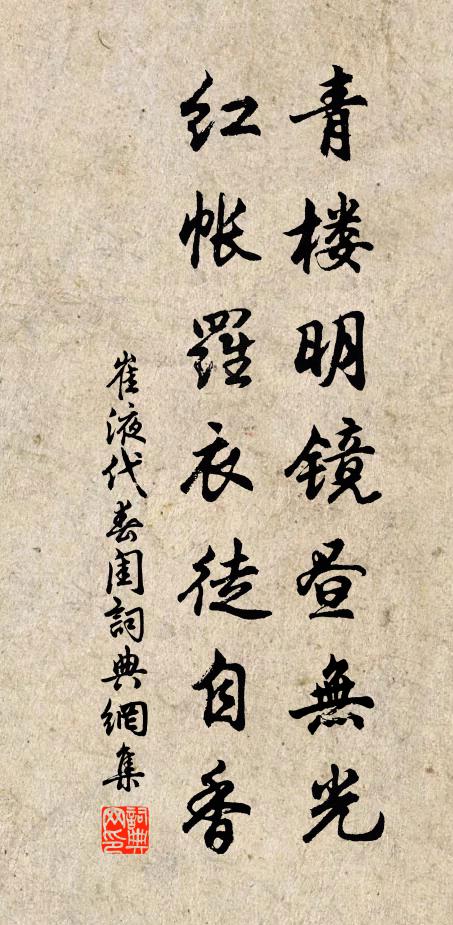 青楼明镜昼無光
红帐羅衣徒自香
崔液代春闺詞典網集
詞典网印